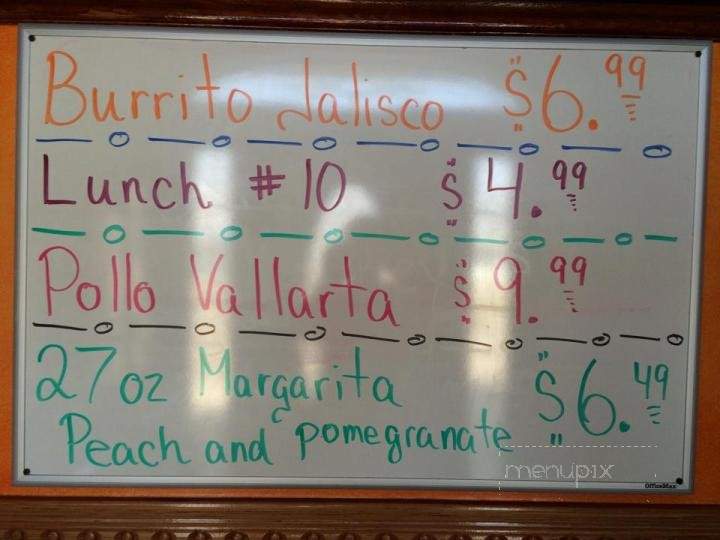 Burrito Jalisco $6.99
Lunch #10 $4.99
Pollo Vallarta $9.99
27oz Margarita $6.49
Peach and pomegranate
menupix
OfficeMax